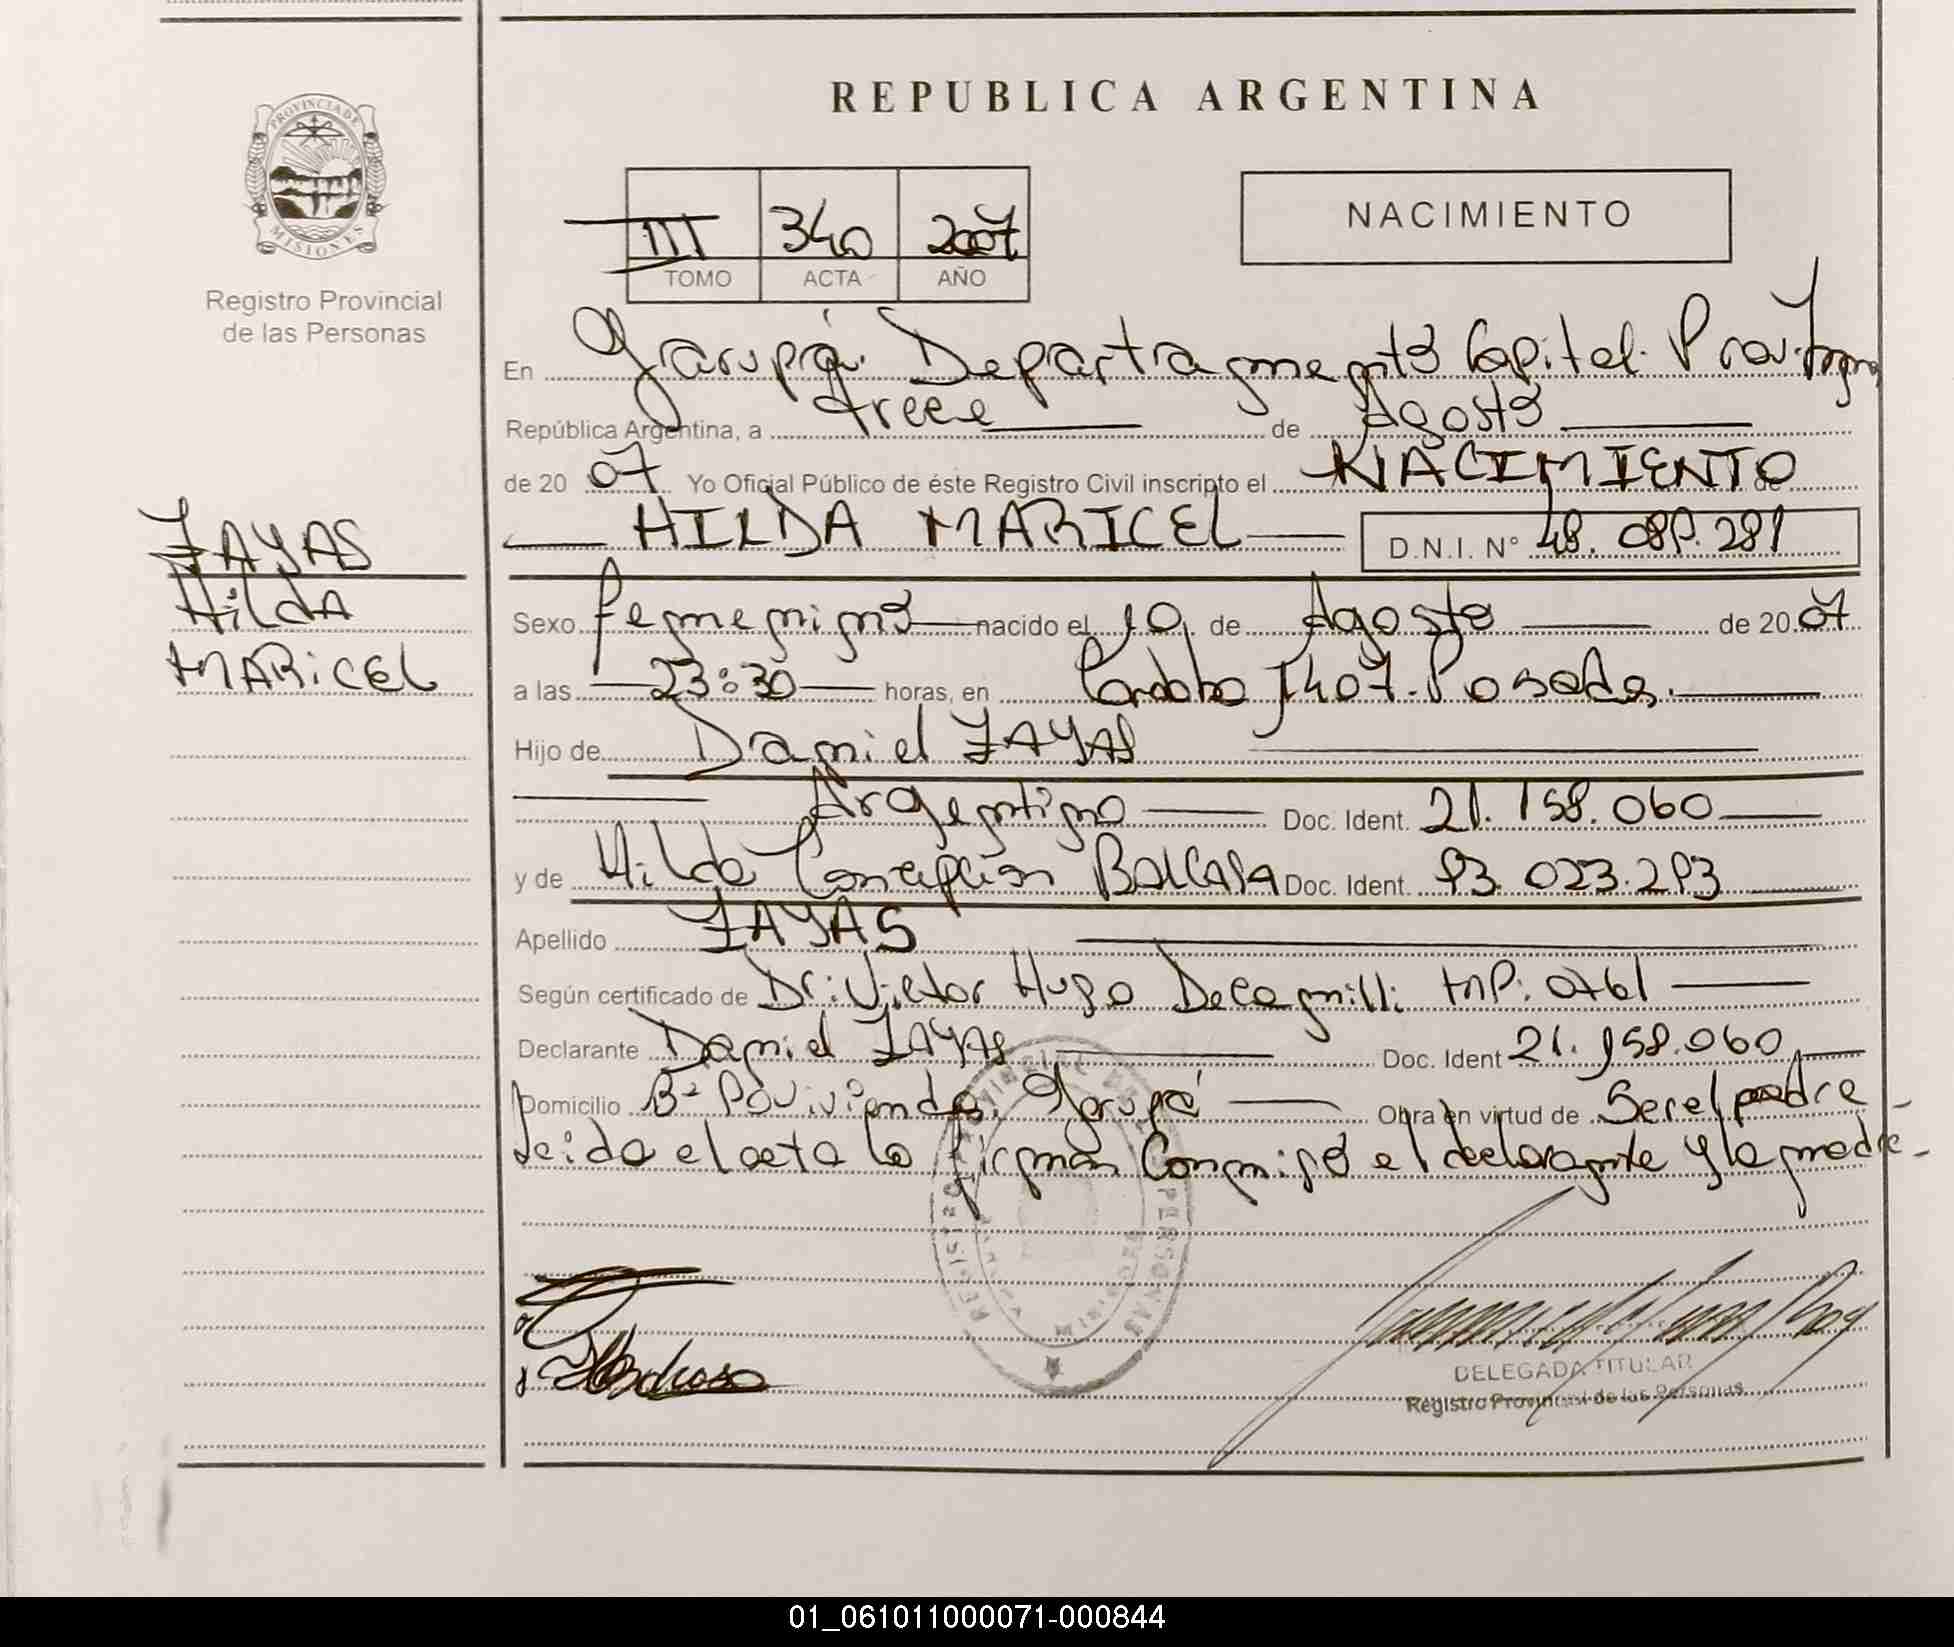 REPUBLICA ARGENTINA
PROVINCIA DE
MISIONES
Registro Provincial
de las Personas
III 340 2007
TOMO ACTA AÑO
NACIMIENTO
En Garupá. Departamento Capital. Prov.
República Argentina, a trece de Agosto
de 2007 Yo Oficial Público de éste Registro Civil inscripto el NACIMIENTO de
HILDA MARICEL D.N.I. N° 48.089.281
ZAYAS
Hilda
MARiCEL
Sexo femenino nacido el 10 de Agosto de 2007
a las 23:30 horas, en Cordoba 1407. Posadas.
Hijo de Daniel ZAYAS
Argentino Doc. Ident. 21.158.060
y de Hilda Concepción Doc. Ident. 93.023.293
Apellido ZAYAS
Según certificado de Dr. Victor Hugo Decamilli MP. 0761
Declarante Daniel ZAYAS Doc. Ident 21.158.060
Domicilio Bº viviendas. Garupá Obra en virtud de Ser el padre
Leida el acta la firman Conmigo el declarante y la madre.
DELEGADA TITULAR
Registro Provincial de las Personas
01_061011000071-000844